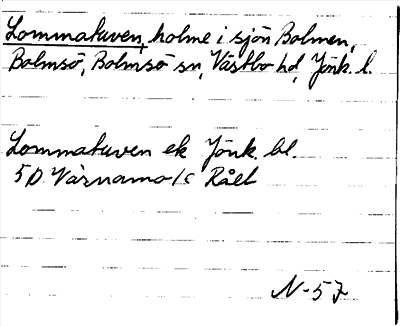 Lommatuven, holme i sjön Bolmen,
Bolmsö, Bolmsö sn, Västbo hd, Jönk. l.
Lommatuven ek Jönk. bl.
5D Värnamo 1c Råek
N-57